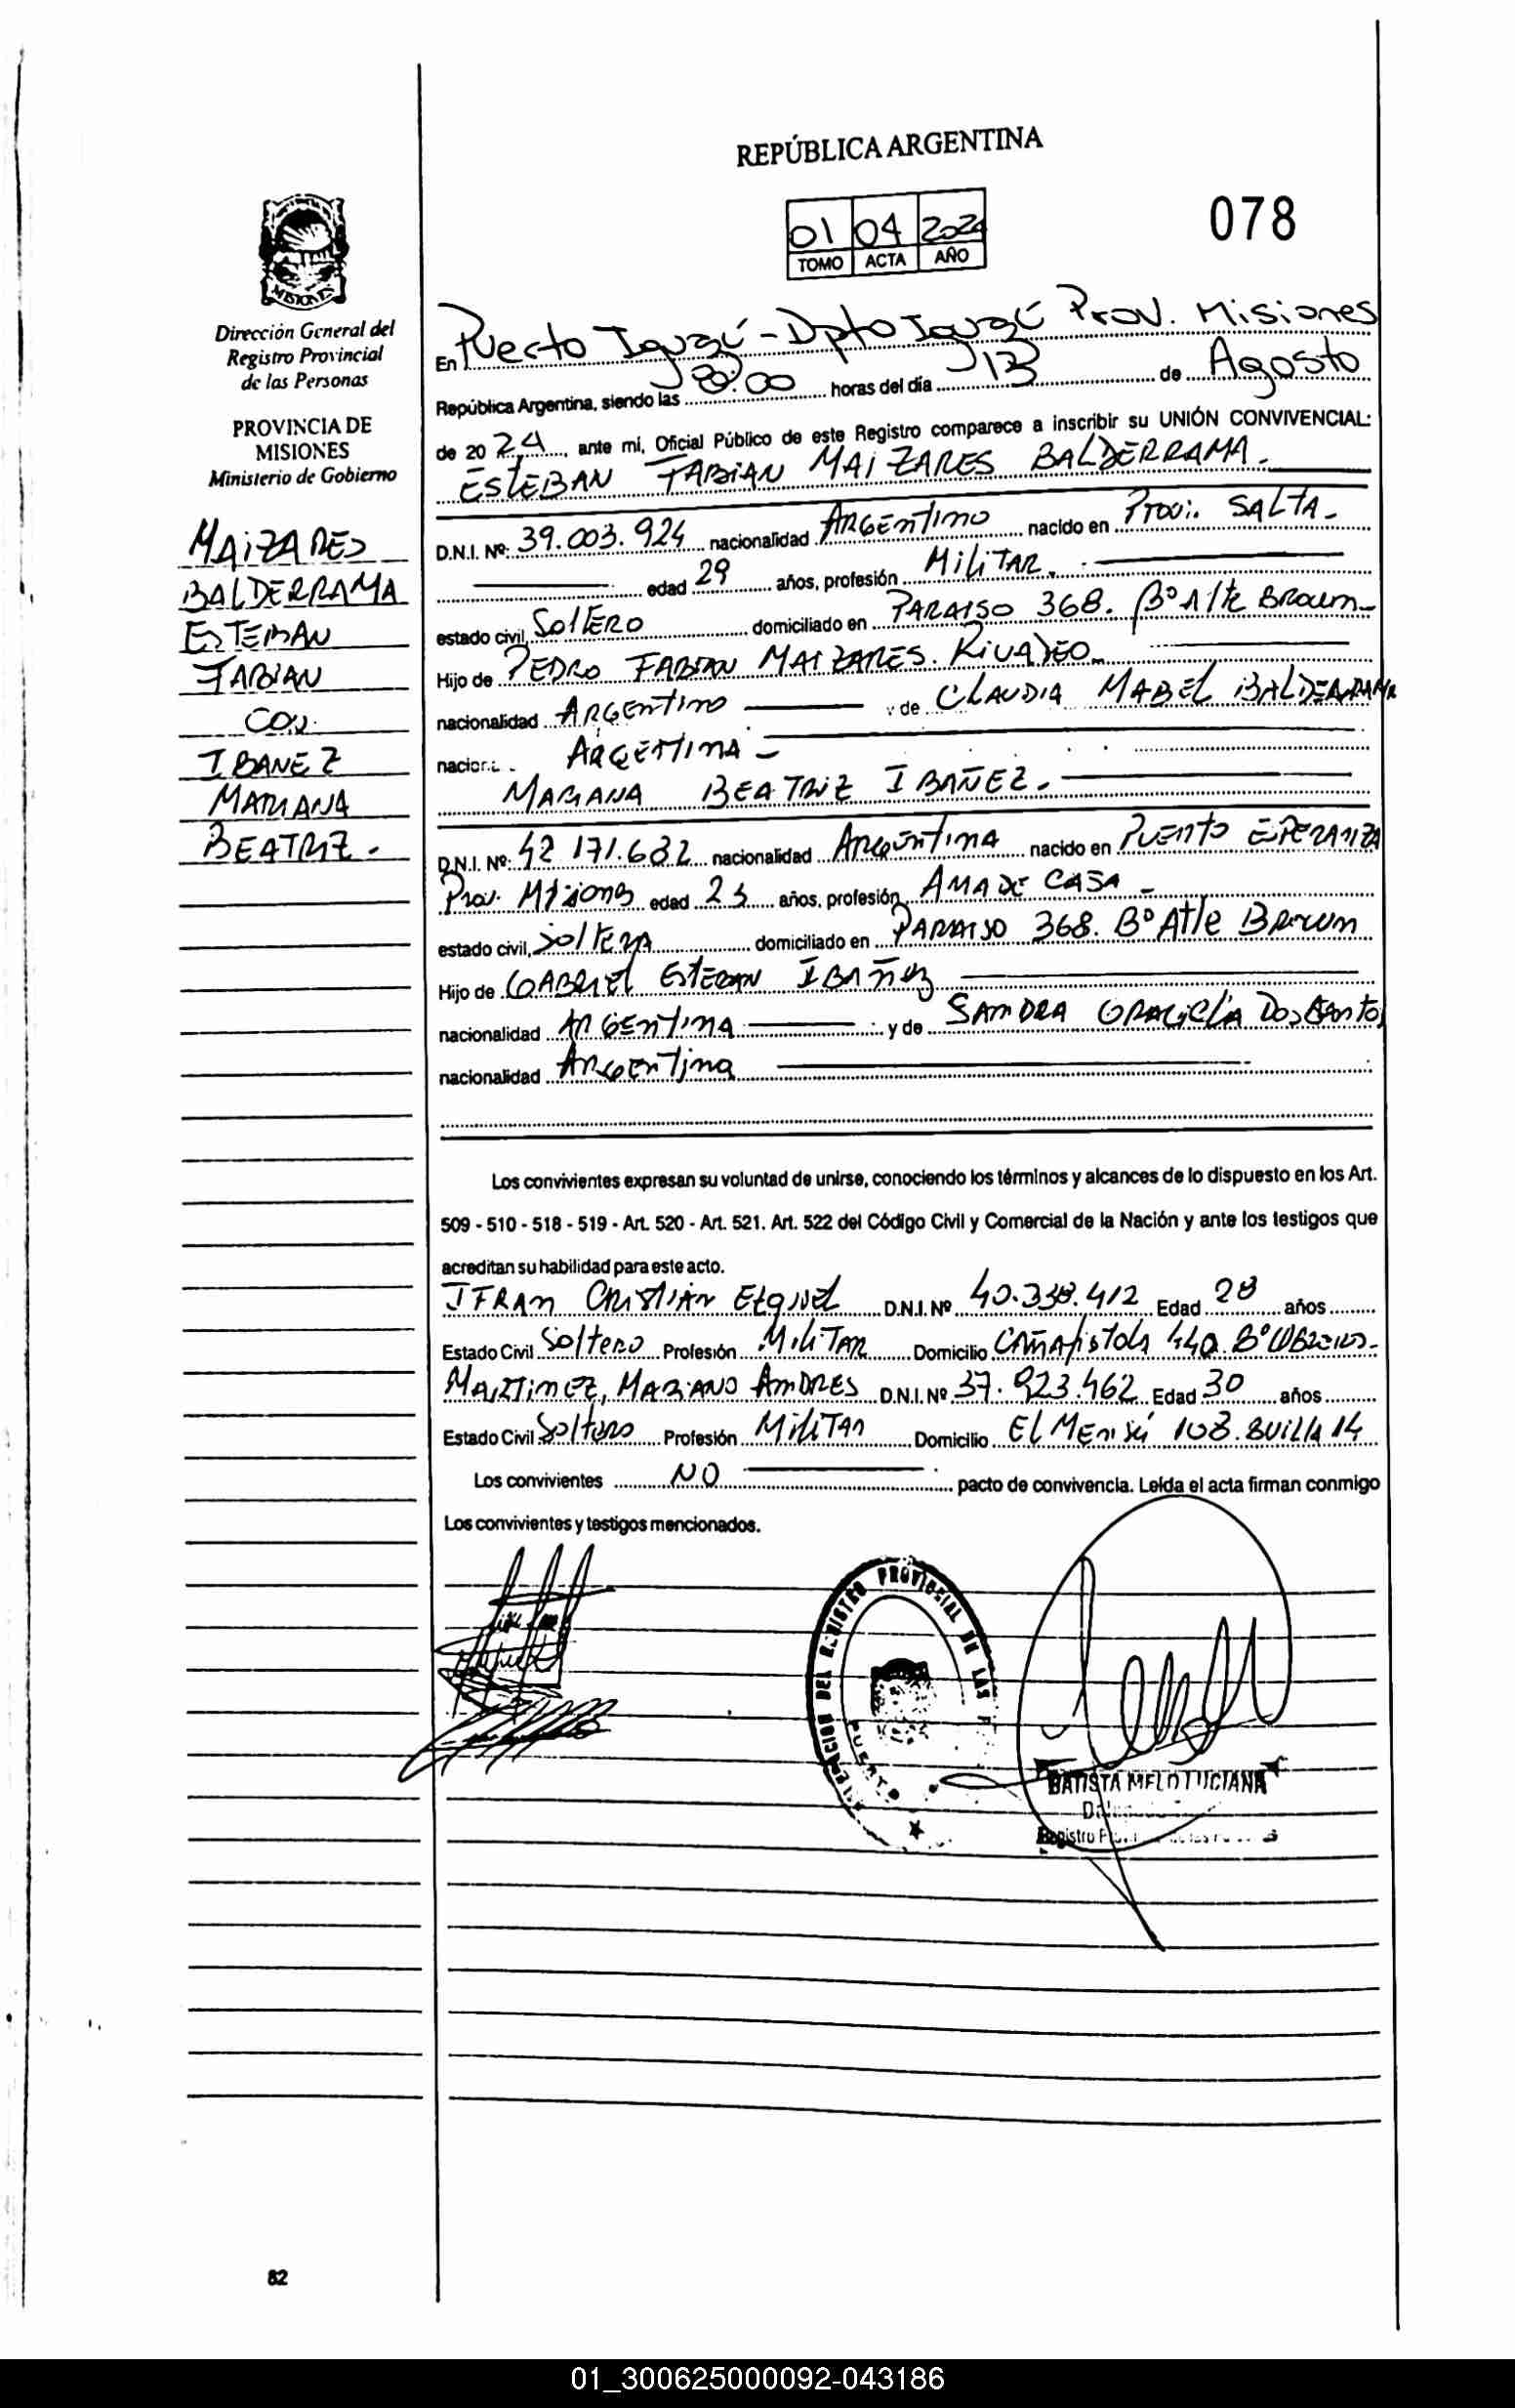 REPÚBLICA ARGENTINA
01 04 2024
TOMO ACTA AÑO
078
MISIONES
Dirección General del
Registro Provincial
de las Personas
PROVINCIA DE
MISIONES
Ministerio de Gobierno
MAIZARES
BALDERRAMA
ESTEBAN
FABIAN
CON
IBANEZ
MARIANA
BEATRIZ.-
En Puerto Iguazú - Dpto Iguazú Prov. Misiones
República Argentina, siendo las horas del día 13 de Agosto
de 2024, ante mí, Oficial Público de este Registro comparece a inscribir su UNIÓN CONVIVENCIAL:
ESTEBAN FABIAN MAIZARES BALDERRAMA.-
D.N.I. Nº: 39.003.924 nacionalidad ARGENTINO nacido en Prov. SALTA-
edad 29 años, profesión MILITAR.
estado civil, SOLTERO domiciliado en PARAISO 368. Bº Alte Brown-
Hijo de PEDRO FABIAN MAIZARES. RIVADEO
nacionalidad ARGENTINO y de CLAUDIA MABEL BALDERRAMA
nacion ARGENTINA -
MARIANA BEATRIZ IBAÑEZ.-
D.N.I. Nº: 42 171.632 nacionalidad Argentina nacido en PUERTO ESPERANZA
Prov. Misiones edad 25 años, profesión AMA DE CASA -
estado civil, Soltera domiciliado en PARAISO 368. Bº Atle Brown
Hijo de GABRIEL ESTEBAN IBAÑEZ
nacionalidad ARGENTINA y de SANDRA GRACIELA Dos Santos
nacionalidad Argentina
Los convivientes expresan su voluntad de unirse, conociendo los términos y alcances de lo dispuesto en los Art.
509 - 510 - 518 - 519 - Art. 520 - Art. 521. Art. 522 del Código Civil y Comercial de la Nación y ante los testigos que
acreditan su habilidad para este acto.
IFRAN CRISTIAN D.N.I. Nº 40.338.412 Edad 28 años
Estado Civil Soltero Profesión MILITAR Domicilio CAÑAFISTOLA 440. Bº
MARTINEZ, MARIANO ANDRES D.N.I. Nº 37.923.462 Edad 30 años
Estado Civil Soltero Profesión MILITAR Domicilio El Mensú 108. BVILLA 14
Los convivientes NO pacto de convivencia. Leída el acta firman conmigo
Los convivientes y testigos mencionados.
DEL REGISTRO PROVINCIAL DE LAS P
PUERTO
BATISTA MELO LUCIANA
Registro
82
01_300625000092-043186